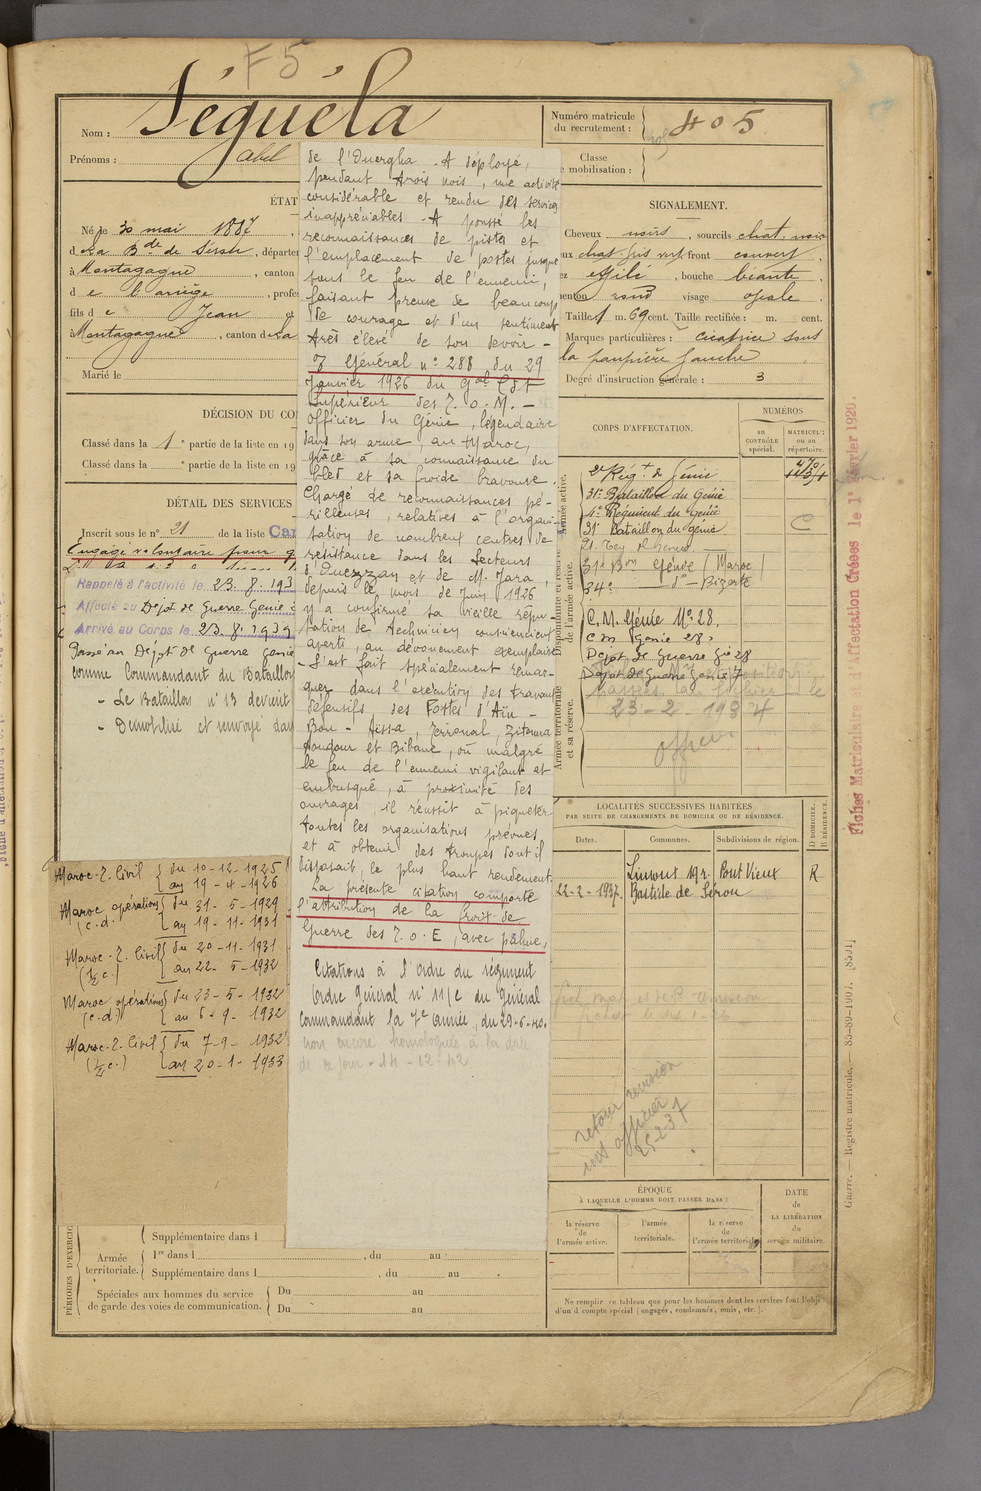 F5
Nom : Séguéla
Prénoms : Abel
Numéro matricule du recrutement : 405
Classe de mobilisation :
ÉTAT
Né le 30 mai 1887
d La Bde de Sérou, départe
à Montagagne, canton
d e l'ariège, profes
fils d e Jean et
à Montagagne, canton d La
Marié le
DÉCISION DU CO
Classé dans la 1e partie de la liste en 19
Classé dans la e partie de la liste en 19
DÉTAIL DES SERVICES
Inscrit sous le n° 21 de la liste
Engagé volontaire pour
Rappelé à l'activité le 23.8.193
Affecté au Dépôt de Guerre Génie
Arrivé au Corps le 23.8.1939
Passé au Dépôt de Guerre génie
comme Commandant du Bataillon
- Le Bataillon n° 13 devient
- Démobilisé et renvoyé dan
Maroc-Z. Civil { du 10-12-1925
au 19-4-1926
Maroc opérations { du 31-5-1929
(c.d.) au 19-11-1931
Maroc-Z. Civil { du 20-11-1931
(1/2 c.) au 22-5-1932
Maroc opérations { du 23-5-1932
(c.d.) au 6-9-1932
Maroc-Z. Civil { du 7-9-1932
(1/2 c.) au 20-1-1933
de l'Ouergha. A déployé,
pendant trois mois, une activité
considérable et rendu des services
inappréciables. A poussé les
reconnaissances de pistes et
l'emplacement de postes jusque
sous le feu de l'ennemi,
faisant preuve de beaucoup
de courage et d'un sentiment
très élevé de son devoir -
O Général n° 288 du 29
Janvier 1926 du Gal Cdt
Supérieur des T.O.M. -
Officier du Génie, légendaire
dans son arme, au Maroc,
grâce à sa connaissance du
bled et sa froide bravoure.
Chargé de reconnaissances pé-
rilleuses, relatives à l'organi-
sation de nombreux centres de
résistance dans les Secteurs
d'Ouezzan et de M. Jara,
depuis le mois de Juin 1926
y a confirmé sa vieille répu-
tation de technicien consciencieux
averti, au dévouement exemplaire
- S'est fait spécialement remar-
quer dans l'exécution des travaux
défensifs des Postes d'Aïn -
Bou - Aissa, Terroual, Zitouna
Aoudour et Bibane, où malgré
le feu de l'ennemi vigilant et
embusqué, à proximité des
ouvrages, il réussit à piqueter
toutes les organisations prévues
et à obtenir des troupes dont il
disposait, le plus haut rendement.
La présente citation comporte
l'attribution de la Croix de
Guerre des T.O.E, avec palme,
Citations à l'Ordre du régiment
Ordre Général n° 11/C du Général
Commandant la 7e Armée, du 29-6-40.
non encore homologuée à la date
de ce jour - 14-12-42
SIGNALEMENT.
Cheveux noirs, sourcils chat. noir
ux chat. gris vert, front couvert
ez effilé, bouche béante
menton rond visage ovale
Taille 1 m. 69 cent. Taille rectifiée : m. cent.
Marques particulières : cicatrice sous
la paupière gauche
Degré d'instruction générale : 3
CORPS D'AFFECTATION.
NUMÉROS
au CONTRÔLE spécial.
MATRICULE ou au répertoire.
Armée active.
Disponibilité et réserve de l'armée active.
Armée territoriale et sa réserve.
2e Régt de Génie
31e Bataillon du Génie
4e Régiment du Génie
31e Bataillon du génie
C
31e Bon Génie (Maroc)
34e — do — Bizerte
C.M. Génie No 28.
C M Génie 28
Dépôt de Guerre Gie 28
Dépôt de Guerre Génie 7
23-2-1934
officier
LOCALITÉS SUCCESSIVES HABITÉES
PAR SUITE DE CHANGEMENTS DE DOMICILE OU DE RÉSIDENCE.
Dates.
Communes.
Subdivisions de région.
D DOMICILE.
R RÉSIDENCE.
Limoux
R
22-2-1937. Bastide de Sérou
retour revision
officier
25-2-37
ÉPOQUE
À LAQUELLE L'HOMME DOIT PASSER DANS :
la réserve de l'armée active.
l'armée territoriale.
la réserve de l'armée territoriale.
DATE de LA LIBÉRATION du service militaire.
Ne remplir ce tableau que pour les hommes dont les services font l'objet
d'un d'compte spécial (engagés, condamnés, omis, etc.).
PÉRIODES D'EXERCIC
Supplémentaire dans l
Armée territoriale.
1re dans l , du au
Supplémentaire dans l , du au
Spéciales aux hommes du service
de garde des voies de communication.
Du au
Du au
Fiches Matriculaire et d'Affectation Créées le 1er Février 1929.
Guerre. — Registre matricule. — 85-89-1907. [8501]